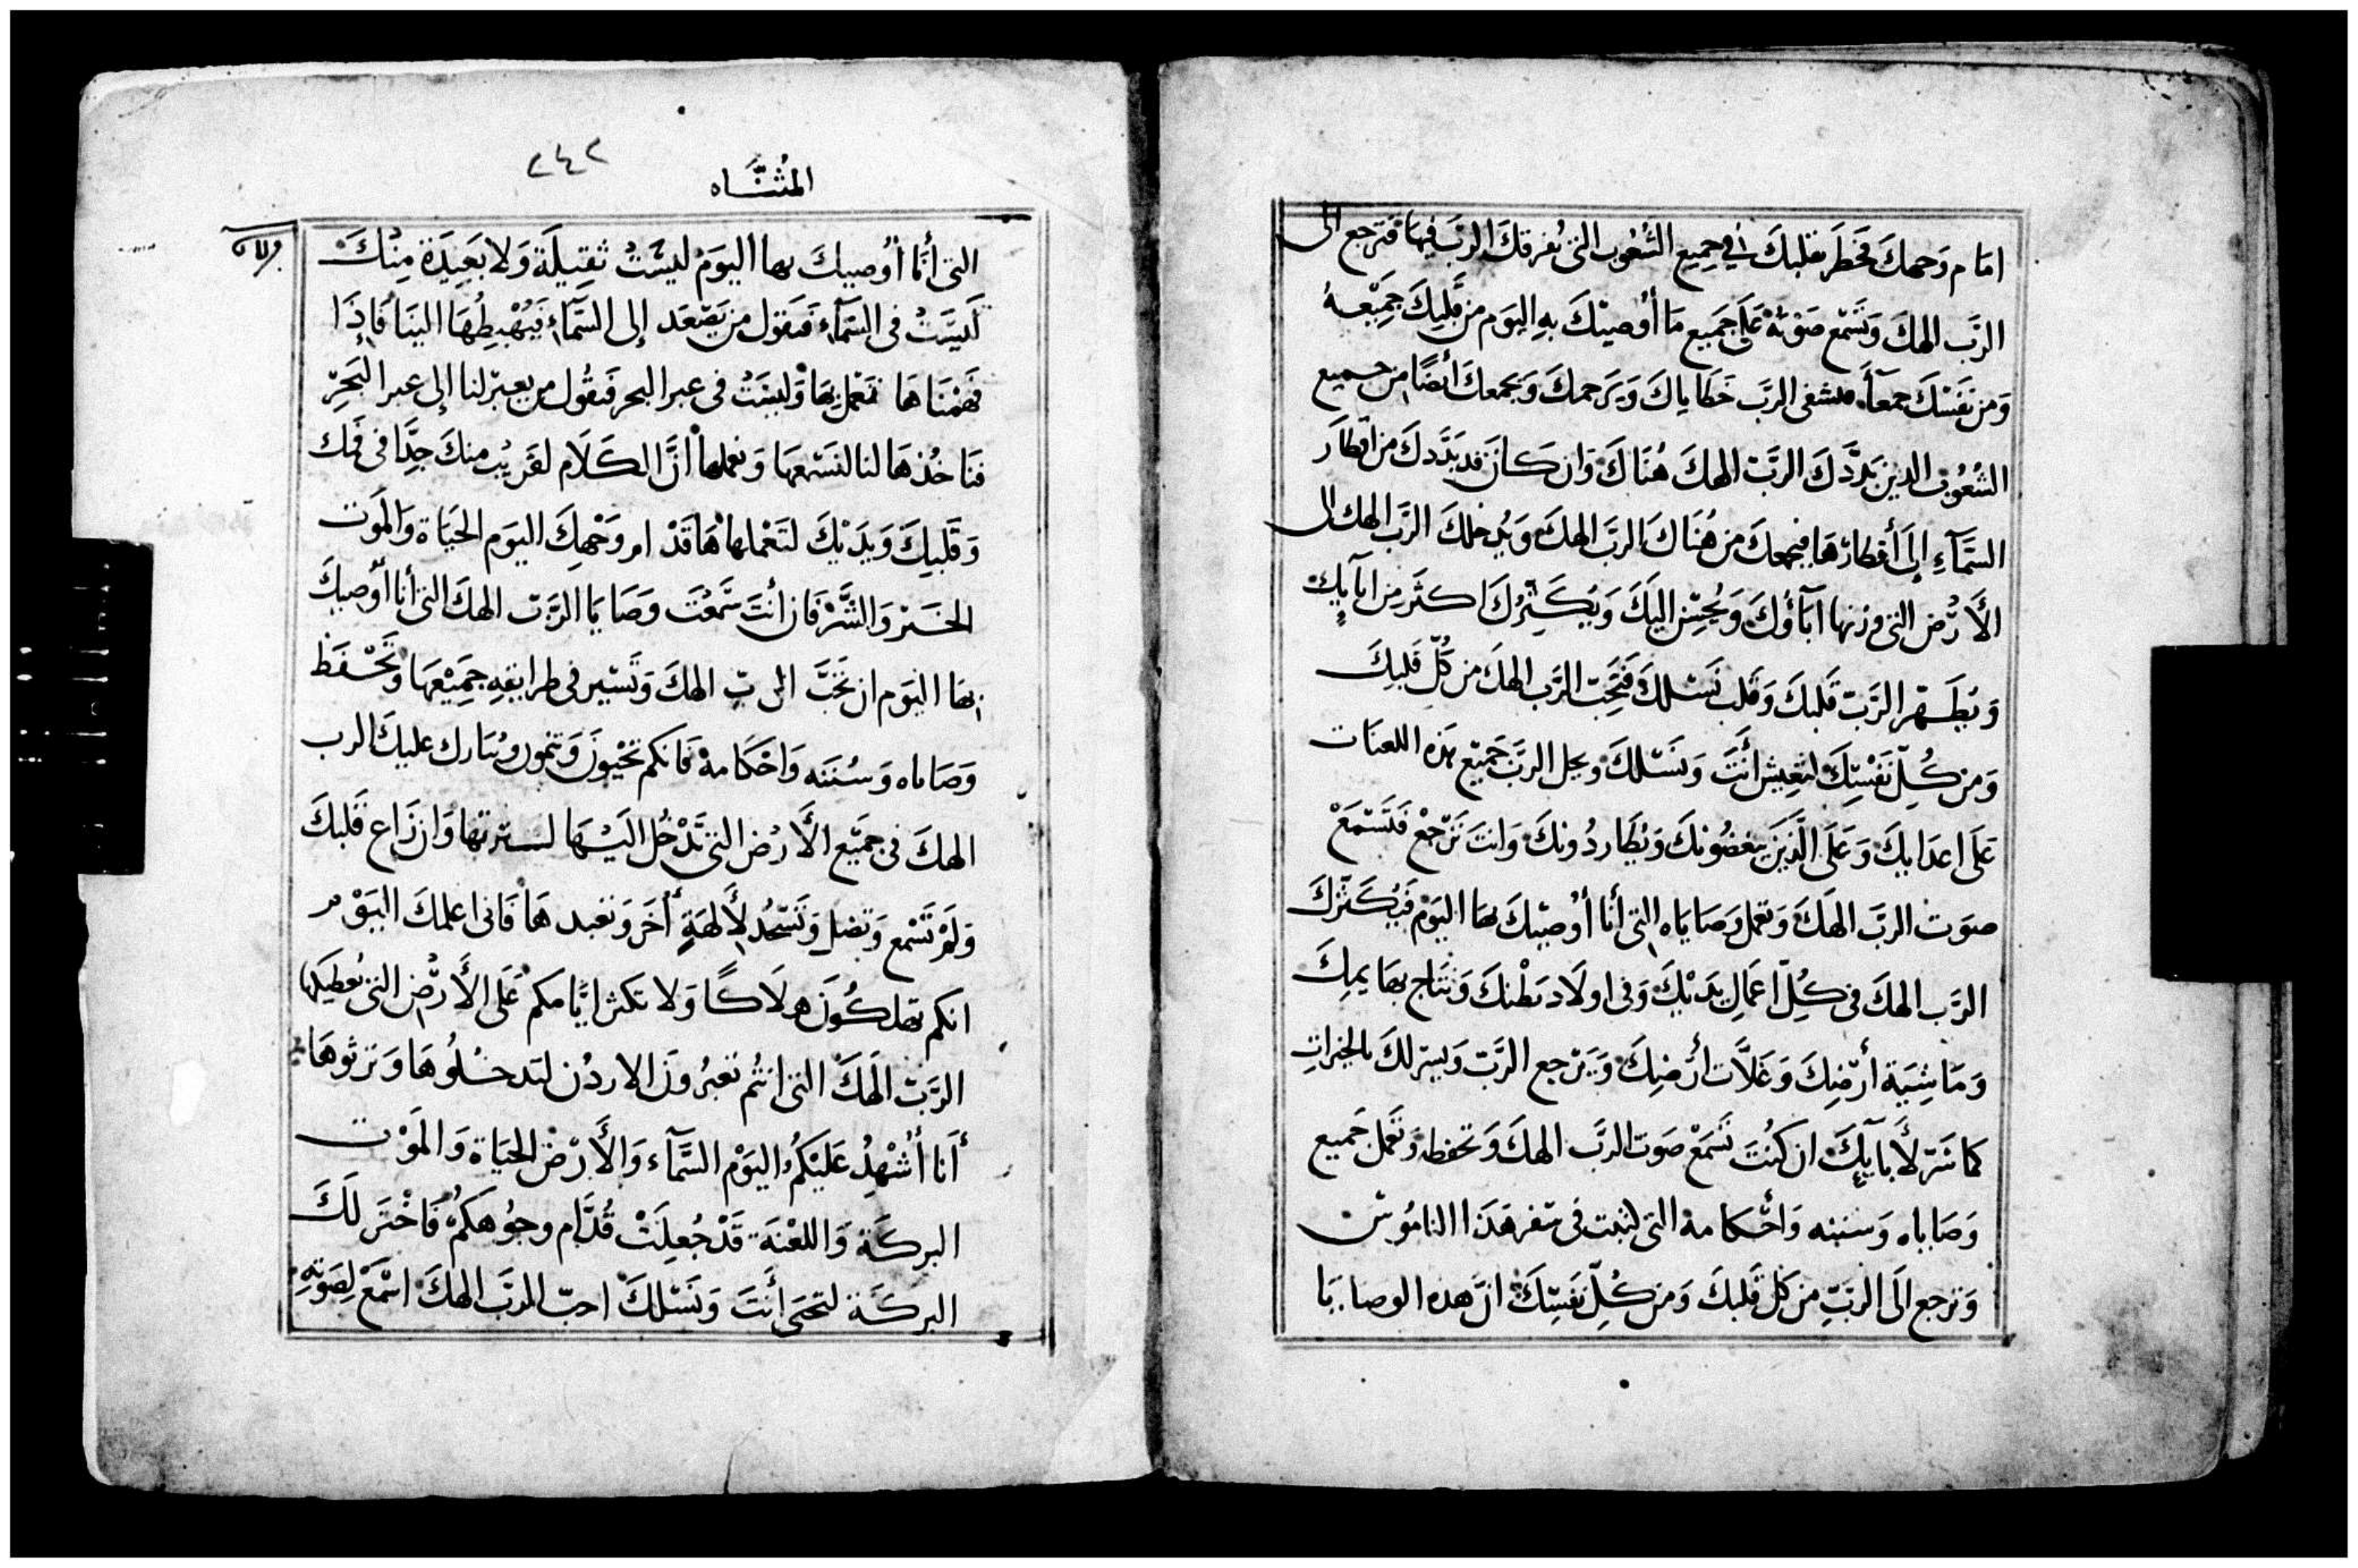 امَام وَجهكَ فخَطرَ بقلبكَ في جميع الشعُوب التى يُفرقكَ الربّ فيها فترجع الى
الرَّب الهكَ وَتَسْمَع صَوْتهُ عَلَى جَميع مَا أُوصيْكَ بهِ اليَوم من قَلبكَ جَميْعهُ
وَمن نفَسْكَ جمعآء فيشفى الربّ خَطَاياكَ وَيَرَحمكَ وَيجمعكَ أيضًا من جميع
الشعُوب الدين بَدَّدَكَ الرَّبّ الهكَ هُنَاكَ وَان كَانَ قد بَدَّدكَ من اقطَار
السَّمَآءِ إلَى أقطارَهَا فيجمعكَ من هُنَاكَ الرَبّ الهكَ وَيُدخلكَ الرَّب الهك الى
الأَرْض التى ورثها ابَآؤكَ وَيُحسِن اليكَ وَيُكَثِّركَ اكثَر مِن ابآيكَ
وَيُطَهّر الرَّبّ قَلبكَ وَقَلب نَسْلكَ فَتحِبّ الرَّب الهكَ من كُلّ قَلبكَ
وَمن كُلّ نَفسْكَ لتَعِيش أَنتَ وَنَسْلكَ ويجل الربَّ جَميْع هَذه اللعنَات
عَلَى اعدَايكَ وَعَلَى الَّذينَ يبغضُونكَ وَيُطَاردُونكَ وَانتَ تَرْجعْ فَتَسْمَعْ
صَوَت الربّ الهكَ وَتعمل وَصَايَاه التى أنَا أُوصيْكَ بهَا اليَوْم فَيُكَثّركَ
الرَّب الهكَ فى كُلّ اعمَال يَدَيْكَ وَفى اولَاد بَطْنكَ وَنتَاج بهَايمكَ
وَمَاشيَة أرْضكَ وَغلَّات أرْضكَ وَيَرْجع الرَّبّ وَيسر لكَ بالخيرَات
كما سَرّ لأَبآيكَ ان كنُتَ تَسْمَعْ صَوت الربَّ الهكَ وَتحفظ وَتعمَل جَميع
وَصَاياه وَسننه وَأحْكَامهْ التى كتبت فى سفر هَذَا النامُوسْ
وَترجع الَى الربّ من كل قَلبكَ وَمن كُلّ نَفسْكَ انَّ هده الوصايَا
المُثنَّاه
٢٤٢
التى أنَا أُوصيكَ بها اليَومْ ليسَتْ ثَقِيلَة وَلَا بَعيدَة مِنْكَ
لَيسَتْ فى السّمَآء فتقول من يَصْعَد إلى السّمَآء فَيُهْبطُهَا الينَا فَإذَا
فَهمْنَاهَا نَعْمل بهَا وَليسَتْ فى عبر البحر فَتقُول من يعبر لنا إلى عبر البَحرْ
فنَاخُذهَا لنا لنَسْمعهَا وَنعملها انَّ الكَلَام لقَريْب منكَ جِدًّا فى فَمك
وَقَلبكَ وَيَدَيْكَ لتَعْملهَا هَا قَدْ ام وَجْهكَ اليَوم الحَيَاة وَالمَوت
الخَيْر وَالشَّرْ فَان أنْتَ سَمَعْتَ وَصَايَا الرَّبّ الهكَ التى أنَا أُوصيكَ
بهَا اليَوم ان تحَبّ الرب الهكَ وَتَسْير فى طرايقهِ جَميْعهَا وَتَحْفَظ
وَصَاياه وَسُنَنه وَاحْكَامهْ فَانكم تَحْيَونَ وَتنمون وَيُبَارك عليكَ الرب
الهكَ فى جَميْع الأَرْض التى تَدْخُل اليْهَا لسترتها وَان زَاغ قَلبكَ
وَلَمْ تَسْمع وَتضل وَتَسْجُد لأَلهَةٍ أُخرَ وَتعبدهَا فَانى اعلمكَ اليَوْم
انكم تهلكُونَ هلَاكًا وَلَا تكثر ايَّامكم عَلى الأَرْض التى يُعطيكهَا
الرَّبّ الهَكَ التى انتُم تعبُرونَ الاردُن لتَدخلُوهَا وَترثوهَا
أَنا أُشْهدُ عَلَيْكُم اليَوْم السَّمَآء وَالأَرْض الحَيَاة وَالمَوْت
البركَة وَاللعْنَة قَدْ جُعلَتْ قُدَّام وجوُهكم فَاخْتَر لَكَ
البركَة لتَحيَى أَنتَ وَنَسْلكَ احبّ الربّ الهكَ اسْمَعْ لصَوتهِ